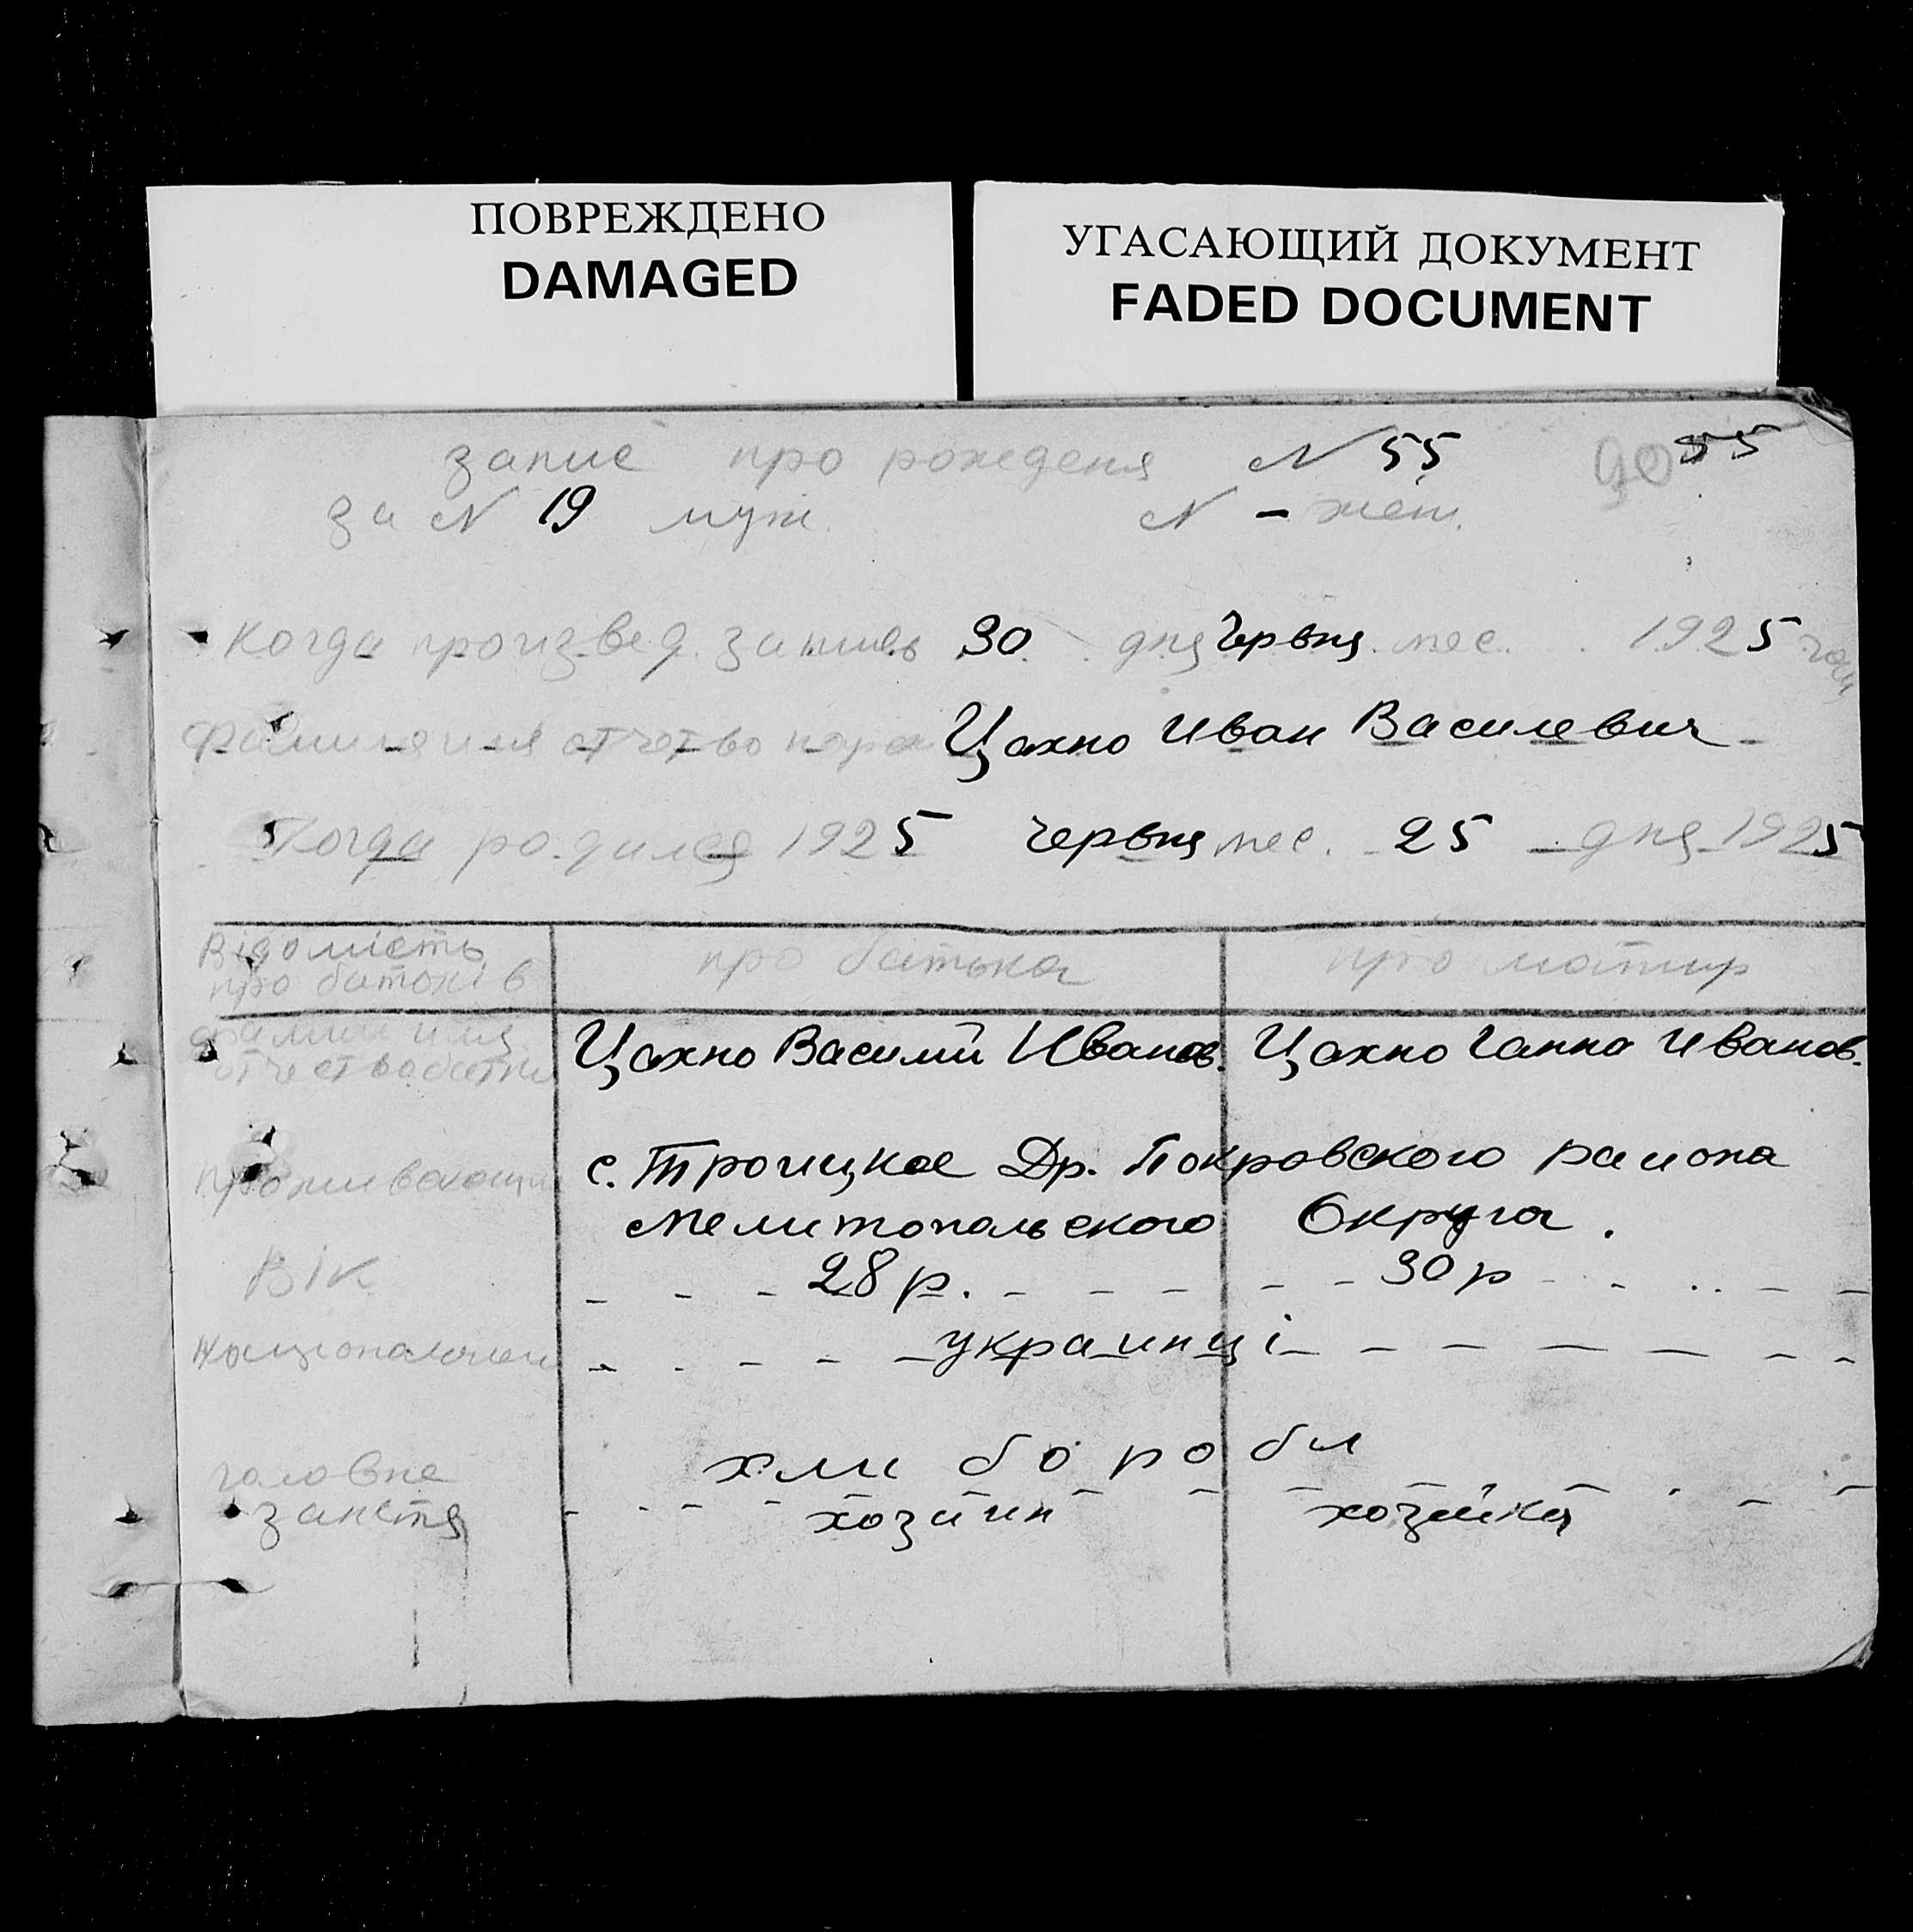 ПОВРЕЖДЕНО
DAMAGED
УГАСАЮЩИЙ ДОКУМЕНТ
FADED DOCUMENT
запис про рождения N 55 90 55
за N 19 муж. N - жен.
Когда произвед. запись 30 дня Червня мес. 1925
Фамилия имя отчетво Цахно Иван Василевич
Когда родился 1925 червня мес. 25 дня 1925
Відомість про батьків
про батька
про матир
Фамил имя отчество
Цахно Василий Иванов. Цахно Ганна Иванов.
Проживающ
с. Троицкое Др. Покровского раиона
Мелитопольского Округа.
Вік 28 р. 30 р
украинці
хли бо ро бы
головне заняття
хозяин хозяйка